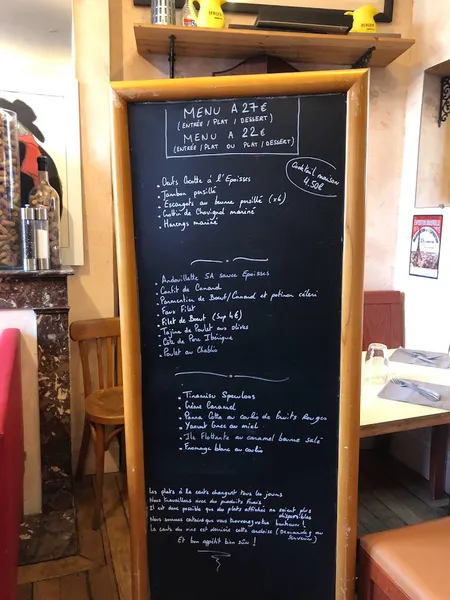 MENU A 27€
(ENTRÉE / PLAT / DESSERT)
MENU A 22€
(ENTRÉE / PLAT OU PLAT / DESSERT)
Cocktail maison
4.50€
. Oeufs Cocotte à l'Epoisses
. Jambon persillé
. Escargots au beurre persillé (x6)
. Crottin de Chavignol mariné
. Harengs marinés
. Andouillette 5A sauce Epoisses
. Confit de Canard
. Parmentier de Boeuf/Canard et potiron céleri
. Faux Filet
. Filet de Boeuf (Sup 4€)
. Tajine de Poulet aux olives
. Côte de Porc Ibérique
. Poulet au Chablis
. Tiramisu Speculoos
. Crème Caramel
. Panna Cotta au coulis de fruits Rouges
. Yaourt Grec au miel
. Ile Flottante au caramel beurre salé
. Fromage blanc au coulis
Les plats à la carte changent tous les jours
Nous travaillons avec des produits frais
Il est donc possible que des plats affichés ne soient plus disponibles
Nous sommes certains que vous trouverez votre bonheur !
La carte des vins est derrière cette ardoise (Demandez au serveur)
Et bon appétit bien sûr !